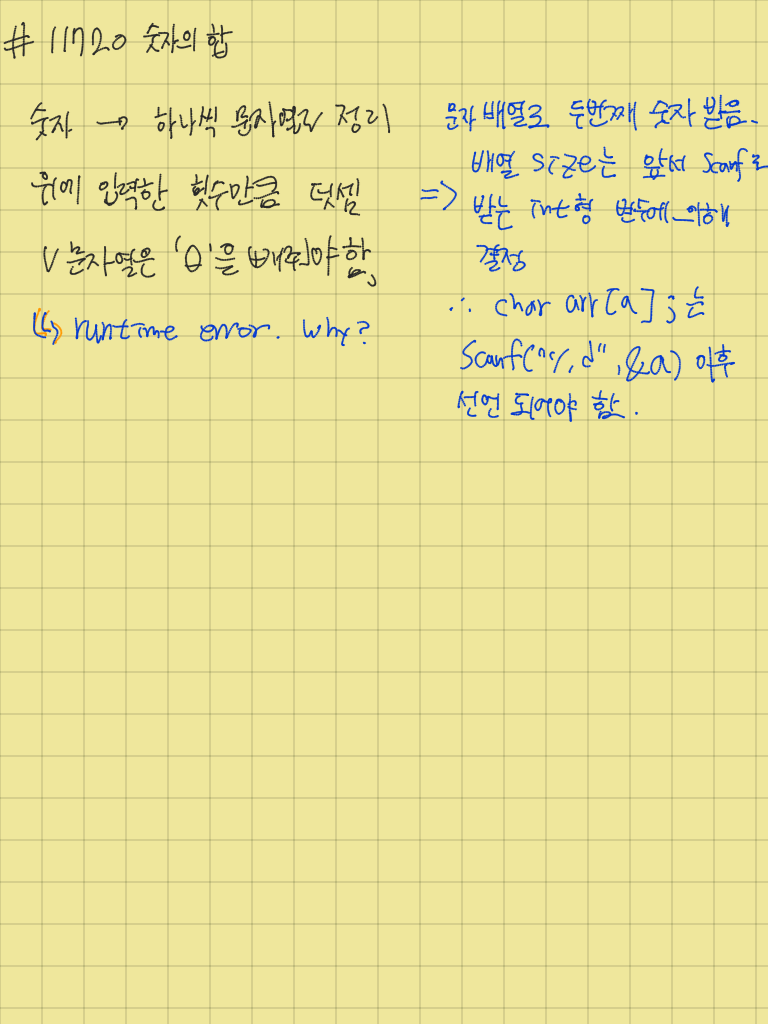 # 11720 숫자의 합
숫자 → 하나씩 문자열로 정리
위에 입력한 횟수만큼 덧셈
V 문자열은 '0'을 빼줘야 함,
↳ runtime error. why?
문자 배열로 두번째 숫자 받음.
배열 size는 앞서 scanf로
⇒ 받는 int형 변수에 의해
결정
∴ char arr[a];는
Scanf("%d", &a) 이후
선언 되어야 함.